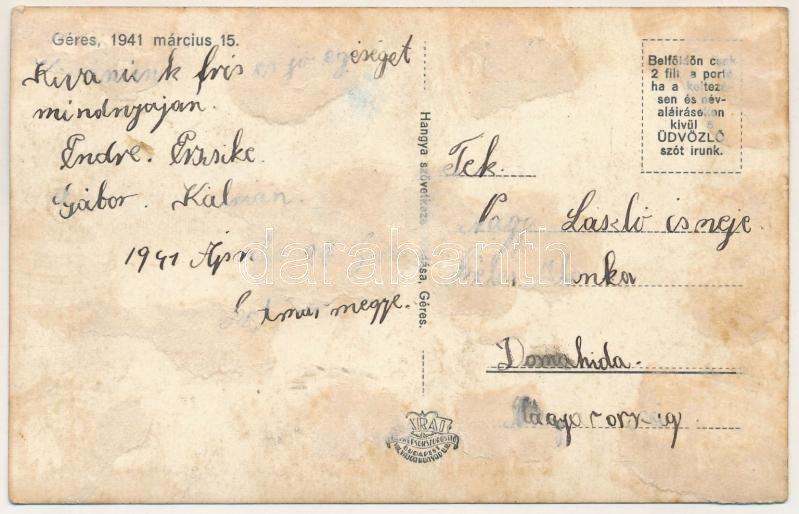 Géres, 1941 március 15.
Kivanunk fris és jó egéséget
mindnyajan.
Endre. Erzsike.
Gábor. Kálmán.
1941 Ápr
megye.
Hangya szövetkezet kiadása, Géres.
Belföldön csak
2 fill. a portó
ha a keltezé-
sen és név-
aláirásokon
kívül 5
ÜDVÖZLŐ
szót irunk.
Tek.
Nagy László és neje
Ilonka
Domahida.
Magyarorszag
darabanth
BUDAPEST